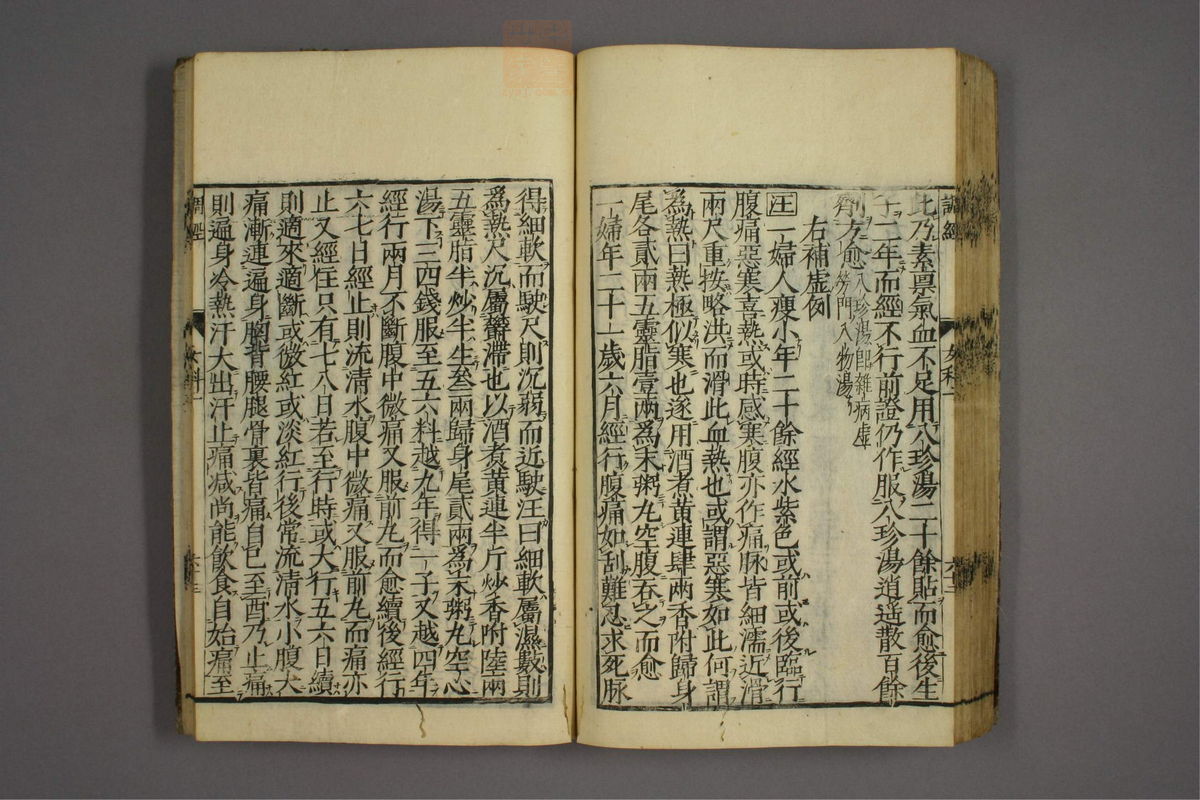 調經
女科一
六十三
此乃素禀氣血不足用八珍湯二十餘貼而愈後生
子二年而經不行前證仍作服八珍湯逍遥散百餘
劑方愈八珍湯即雜病虛
勞門八物湯
右補虛例
汪一婦人瘦小年二十餘經水紫色或前或後臨行
腹痛惡寒喜熱或時感寒腹亦作痛脉皆細濡近滑
兩尺重按略洪而滑此血熱也或謂惡寒如此何謂
爲熱曰熱極似寒也遂用酒煮黄連肆兩香附歸身
尾各貳兩五靈脂壹兩爲末粥丸空腹吞之而愈
一婦年二十一歲六月經行腹痛如刮難忍求死脉
得細軟而駛尺則沉弱而近駛汪曰細軟屬濕數則
爲熱尺沉屬欝滯也以酒煮黄連半斤炒香附陸兩
五靈脂半炒半生叁兩歸身尾貳兩爲末粥丸空心
湯下三四錢服至五六料越九年得一子又越四年
經行兩月不斷腹中微痛又服前丸而愈續後經行
六七日經止則流清水腹中微痛又服前丸而痛亦
止又經住只有七八日若至行時或大行五六日續
則適來適斷或微紅或淡紅行後常流清水小腹大
痛漸連遍身胸背腰腿骨裏皆痛自巳至酉乃止痛
則遍身冷熱汗大出汗止痛减尚能飲食自始痛至
調經
女科一
六十三